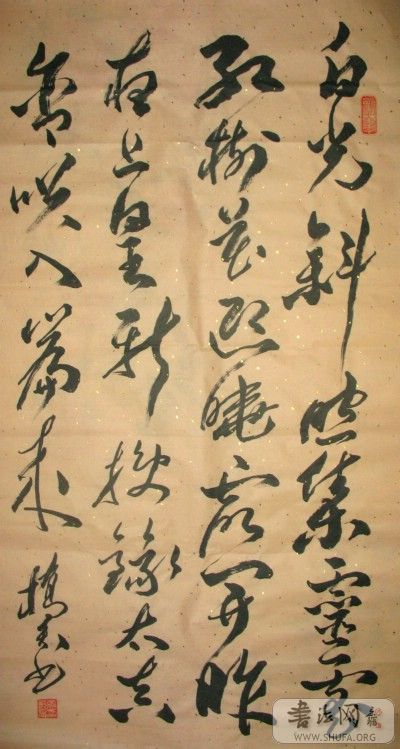 日光斜照集靈臺
紅樹花迎曉露開昨
夜上皇新授籙太真
含咲入簾來
書
書法网
WWW.SHUFA.ORG